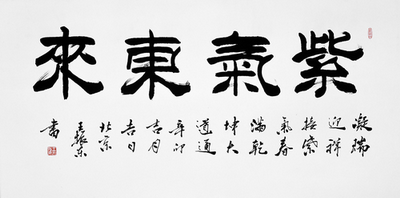 紫氣東來
凝瑞
迎祥
接紫
氣春
滿乾
坤大
道通
辛卯
吉月
吉日
北京
書